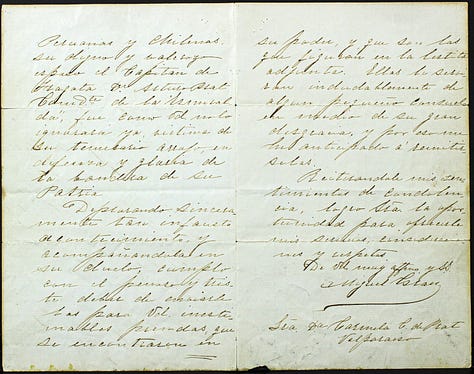 Peruanas y Chilenas,
su digno y valeroso
esposo el Capitan de
Fragata Dn Arturo Prat
Comdte de la "Esmeral
da", fue, como Vd no lo
ignorará ya, víctima de
su temerario arrojo, en
defensa y gloria de
la bandera de su
Patria.
Deplorando sincera
mente tan infausto
acontecimiento, y
acompañandola en
su duelo, cumplo
con el penoso y tris
te deber de enviarle
las para Vd. inesti
mables prendas, que
se encontraron en
su poder, y que son las
que figuran en la lista
adjunta. Ellas le servi
ran indudablemente de
algun pequeño consuelo
en medio de su gran
desgracia, y por eso me
he anticipado a remitir
selas.
Reiterandole mis sen
timientos de condolen
cia, logro Sra la opor
tunidad para ofrecerle
mis servicios, consideracio
nes y respetos
De Vd muy affmo y SS
Miguel Grau
Sra Da Carmela C. de Prat
Valparaiso